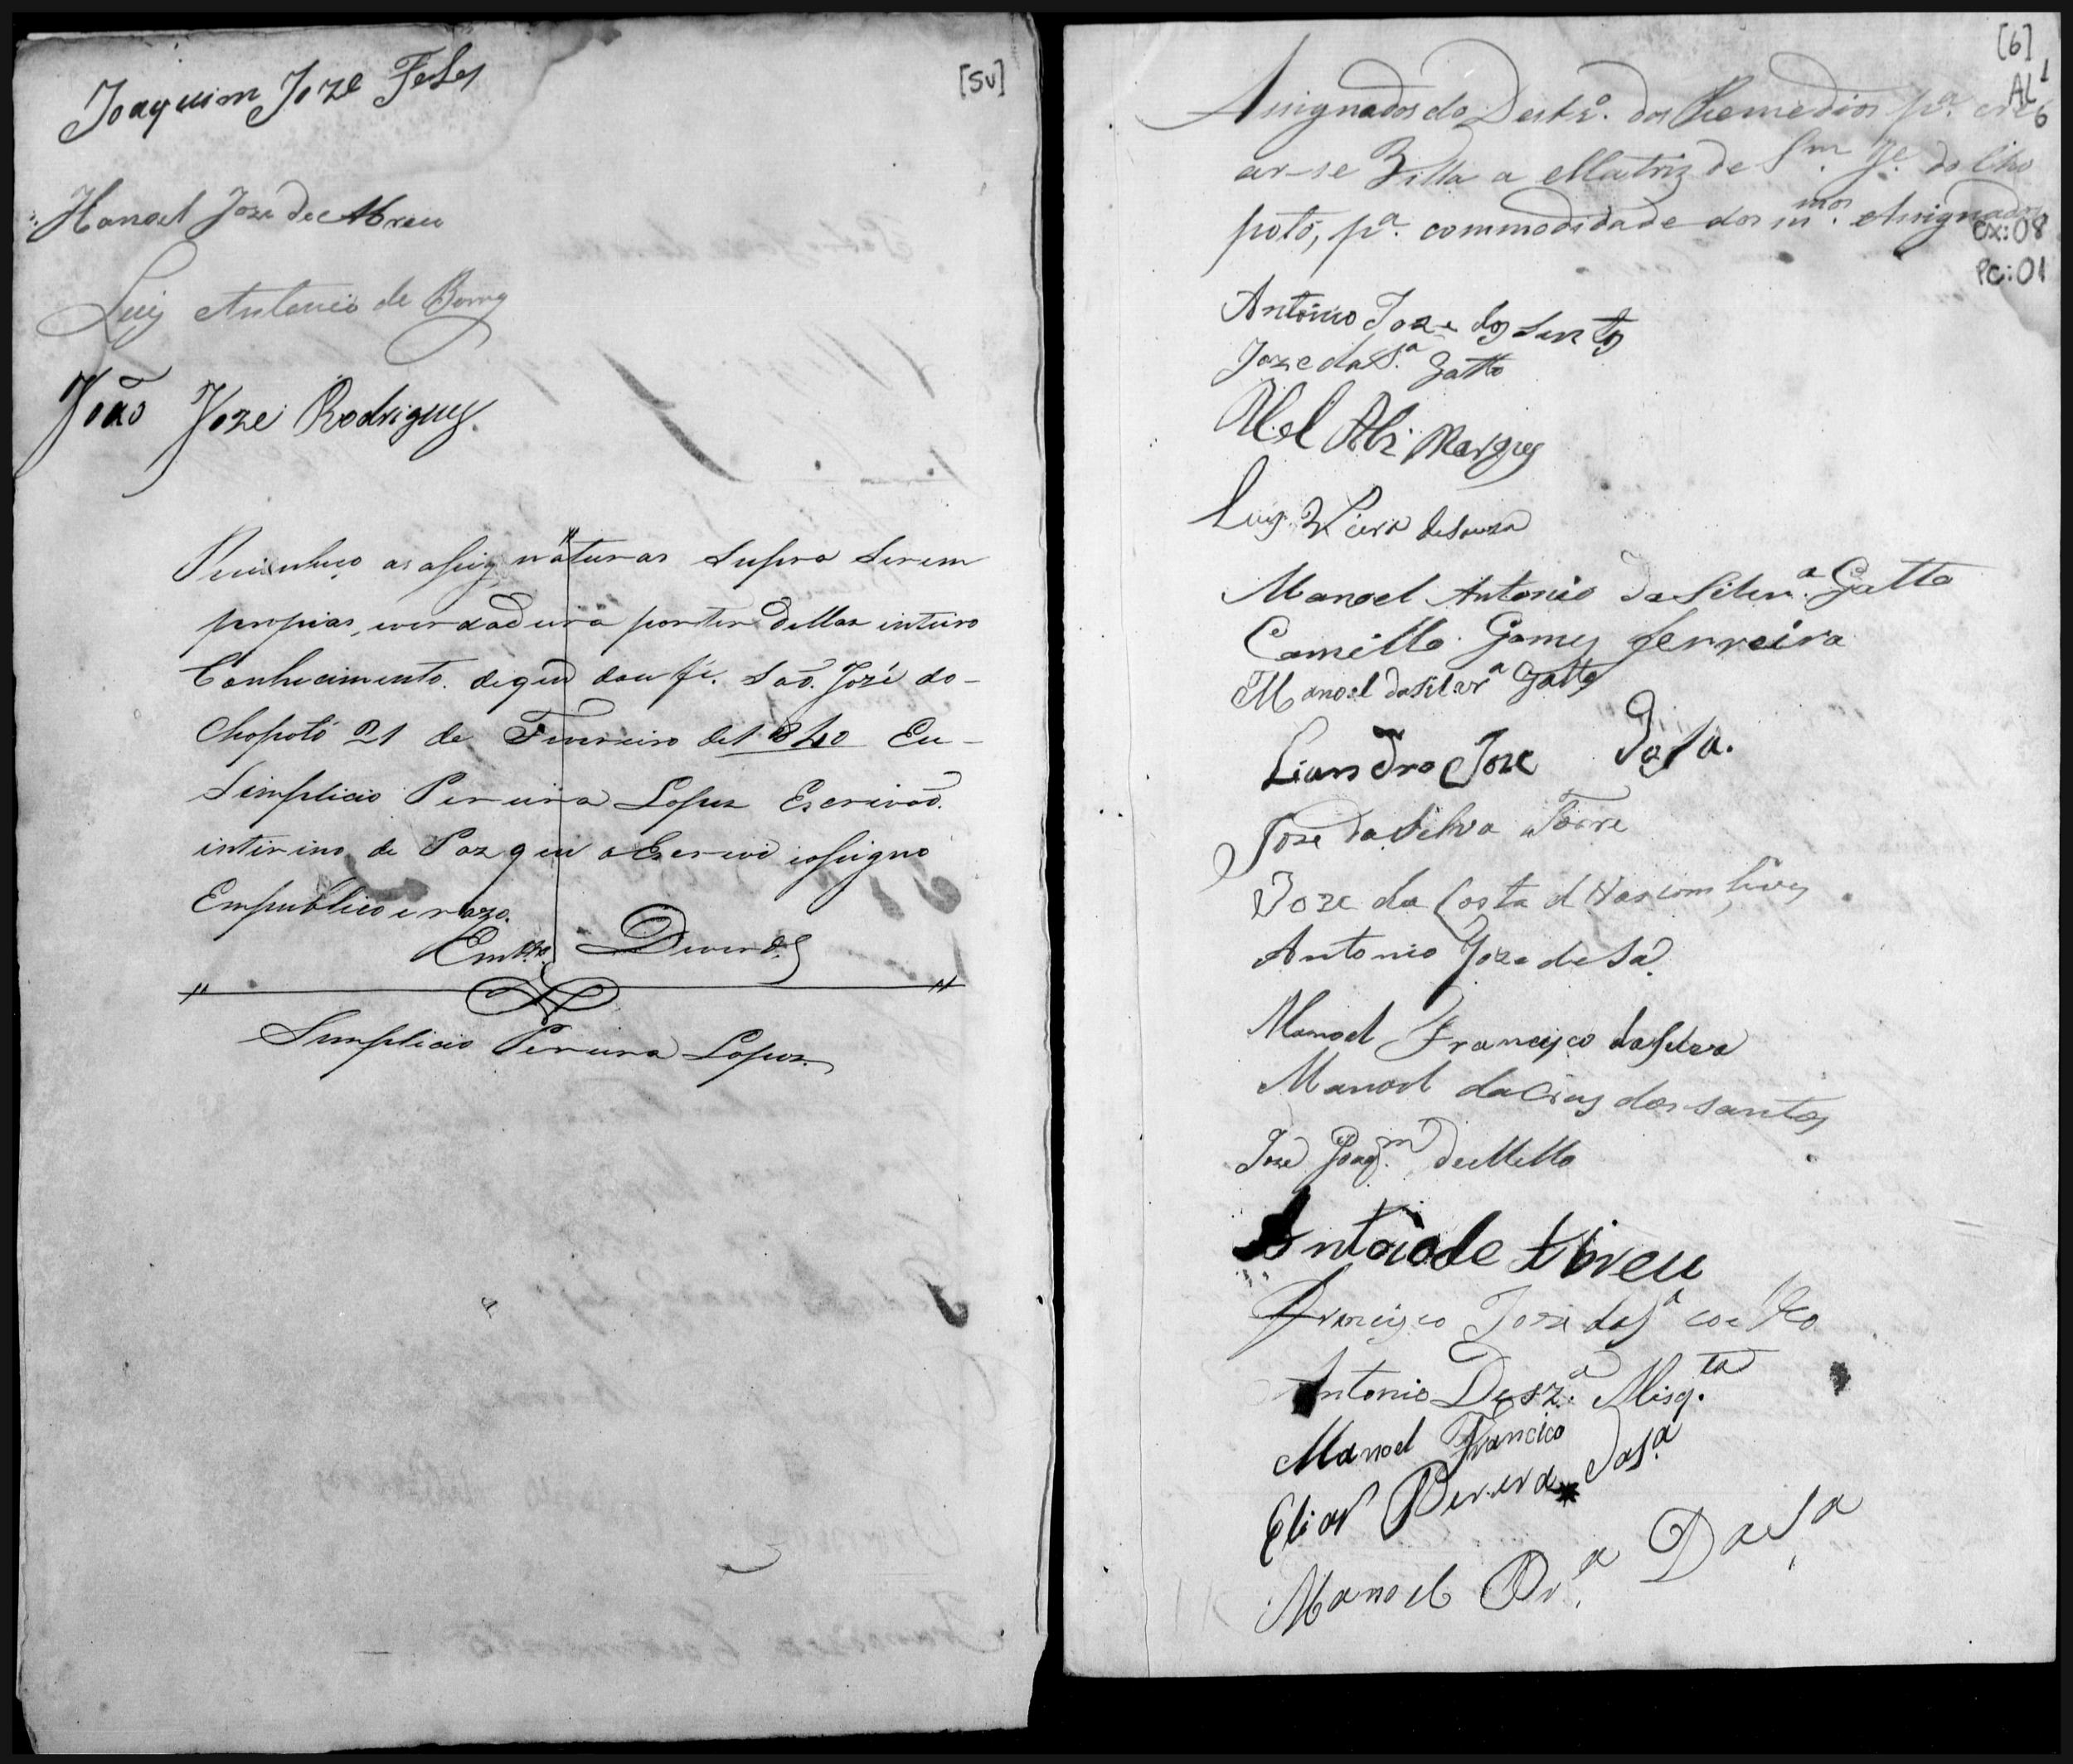 [5v]
Joaquim Joze Teles
Manoel Joze de Abreu
Luis Antonio de
João Joze Rodrigues
Reconheço as asignaturas supra serem
proprias, everdadeira porter dellas inteiro
Conhecimento. deque dou fé. São José do-
Chopotó 21 de Fevereiro de 1840 Eu-
Simplicio Pereira Lopes Escrivão.
interino de Paz que o Escrevi easigno
Empublico e razo.
Emtº. Deverd.e
Simplicio Pereira Lopes
[6]
AL 1
6
Assignados do Destrº. dos Remedios pª. cre
ar-se Villa a Matriz de Sm. Je. do Cho
potó, pª. commodidade dos mmos. Assignados
CX:08
PC:01
Antonio Joze dos Santos
Joze da Sª. Gatto
Abel Marques
Luis Vieira de Souza
Manoel Antonio da Silvª. Gatto
Camillo Gomes Ferreira
Manoel da Silvª Gatto
Liandro Joze da Sa.
Joze da Silva Torre
Joze da Costa d
Antonio Joze de Sá
Manoel Francisco da Silva
Manoel da Crus dos Santos
Joze Joaqm. de Mello
Antoio de Abreu
Francisco Joze da Sª
Antonio de Szª. Misq.ta
Manoel Francico
Elias Pereira da Sª
Manoel Prª. Da Sa